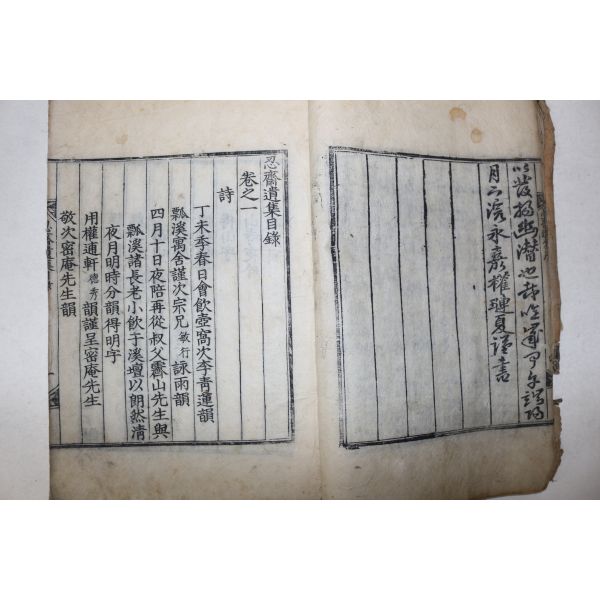 以發揚幽潛也哉 軍 月
月下浣永嘉權璉夏謹書
忍齋遺集目錄
卷之一
詩
丁未季春日會飲壺窩次李青蓮韻
瓢溪寓舍謹次宗兄敏行詠雨韻
四月十日夜陪再從叔父霽山先生與
瓢溪諸長老小飲于溪壇以朗然清
夜月明時分韻得明字
用權逋軒德秀韻謹呈密庵先生
敬次密庵先生韻